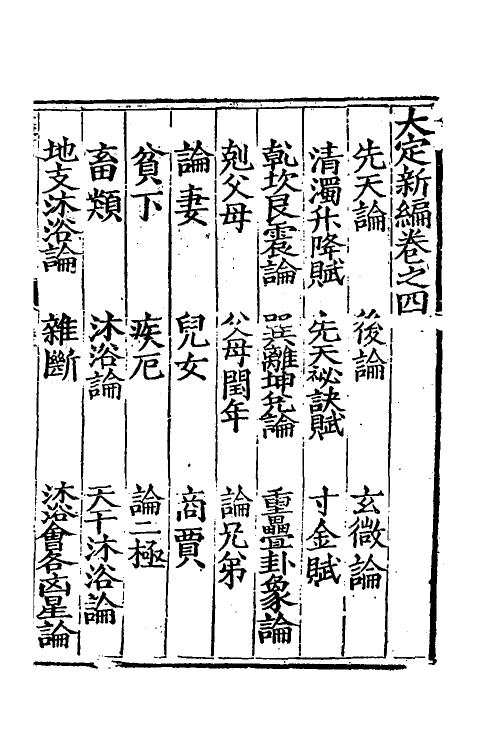 大定新編卷之四
先天論　後論　玄微論
清濁升降賦　先天祕訣賦　寸金賦
乹坎艮震論　巽離坤兊論　重疊卦象論
剋父母　父母閏年　論兄弟
論妻　兒女　商賈
貧下　疾厄　論二極
畜類　沐浴論　天干沐浴論
地支沐浴論　雜斷　沐浴會各凶星論